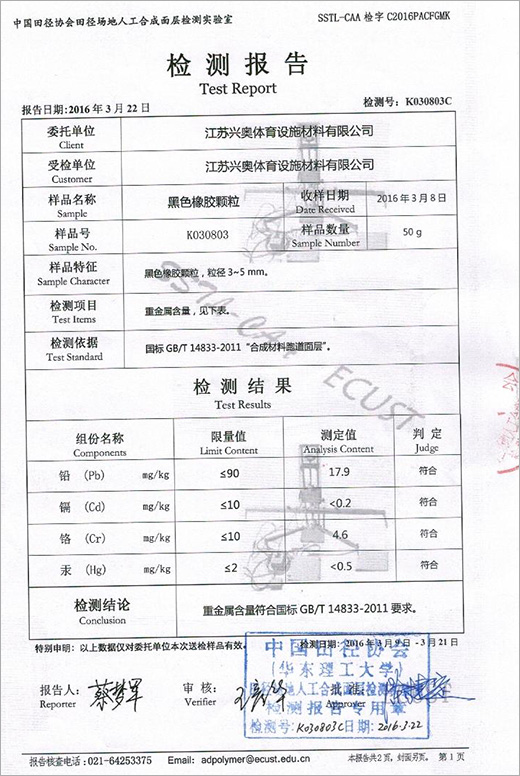 中国田径协会田径场地人工合成面层检测实验室 SSTL-CAA 检字 C2016PACFGMK
检 测 报 告
Test Report
报告日期:2016 年 3 月 22 日 检测号: K030803C
委托单位 江苏兴奥体育设施材料有限公司
Client
受检单位 江苏兴奥体育设施材料有限公司
Customer
样品名称 黑色橡胶颗粒 收样日期 2016 年 3 月 8 日
Sample Date Received
样品号 K030803 样品数量 50 g
Sample No. Sample Number
样品特征 黑色橡胶颗粒，粒径 3~5 mm。
Sample Character
检测项目 重金属含量，见下表。
Test Items
检测依据 国标 GB/T 14833-2011 “合成材料跑道面层”。
Test Standard
SSTL-CAA ECUST
检 测 结 果
Test Results
组份名称 限量值 测定值 判 定
Components Limit Content Analysis Content Judge
铅 (Pb) mg/kg ≤90 17.9 符合
镉 (Cd) mg/kg ≤10 <0.2 符合
铬 (Cr) mg/kg ≤10 4.6 符合
汞 (Hg) mg/kg ≤2 <0.5 符合
检测结论 重金属含量符合国标 GB/T 14833-2011 要求。
Conclusion
特别申明：以上数据仅对委托单位本次送检样品有效。 检测日期: 2016 年 3 月 9 日 - 3 月 21 日
中国田径协会
(华东理工大学)
田径场地人工合成面层检测
检测报告专用章
检测号: K030803C 日期: 2016.3.22
报告人: 蔡梦军 审 核: 批 准:
Reporter Verifier Approver
报告核查电话: 021-64253375 Email: adpolymer@ecust.edu.cn 本报告共 2 页, 封面另页。 第 1 页